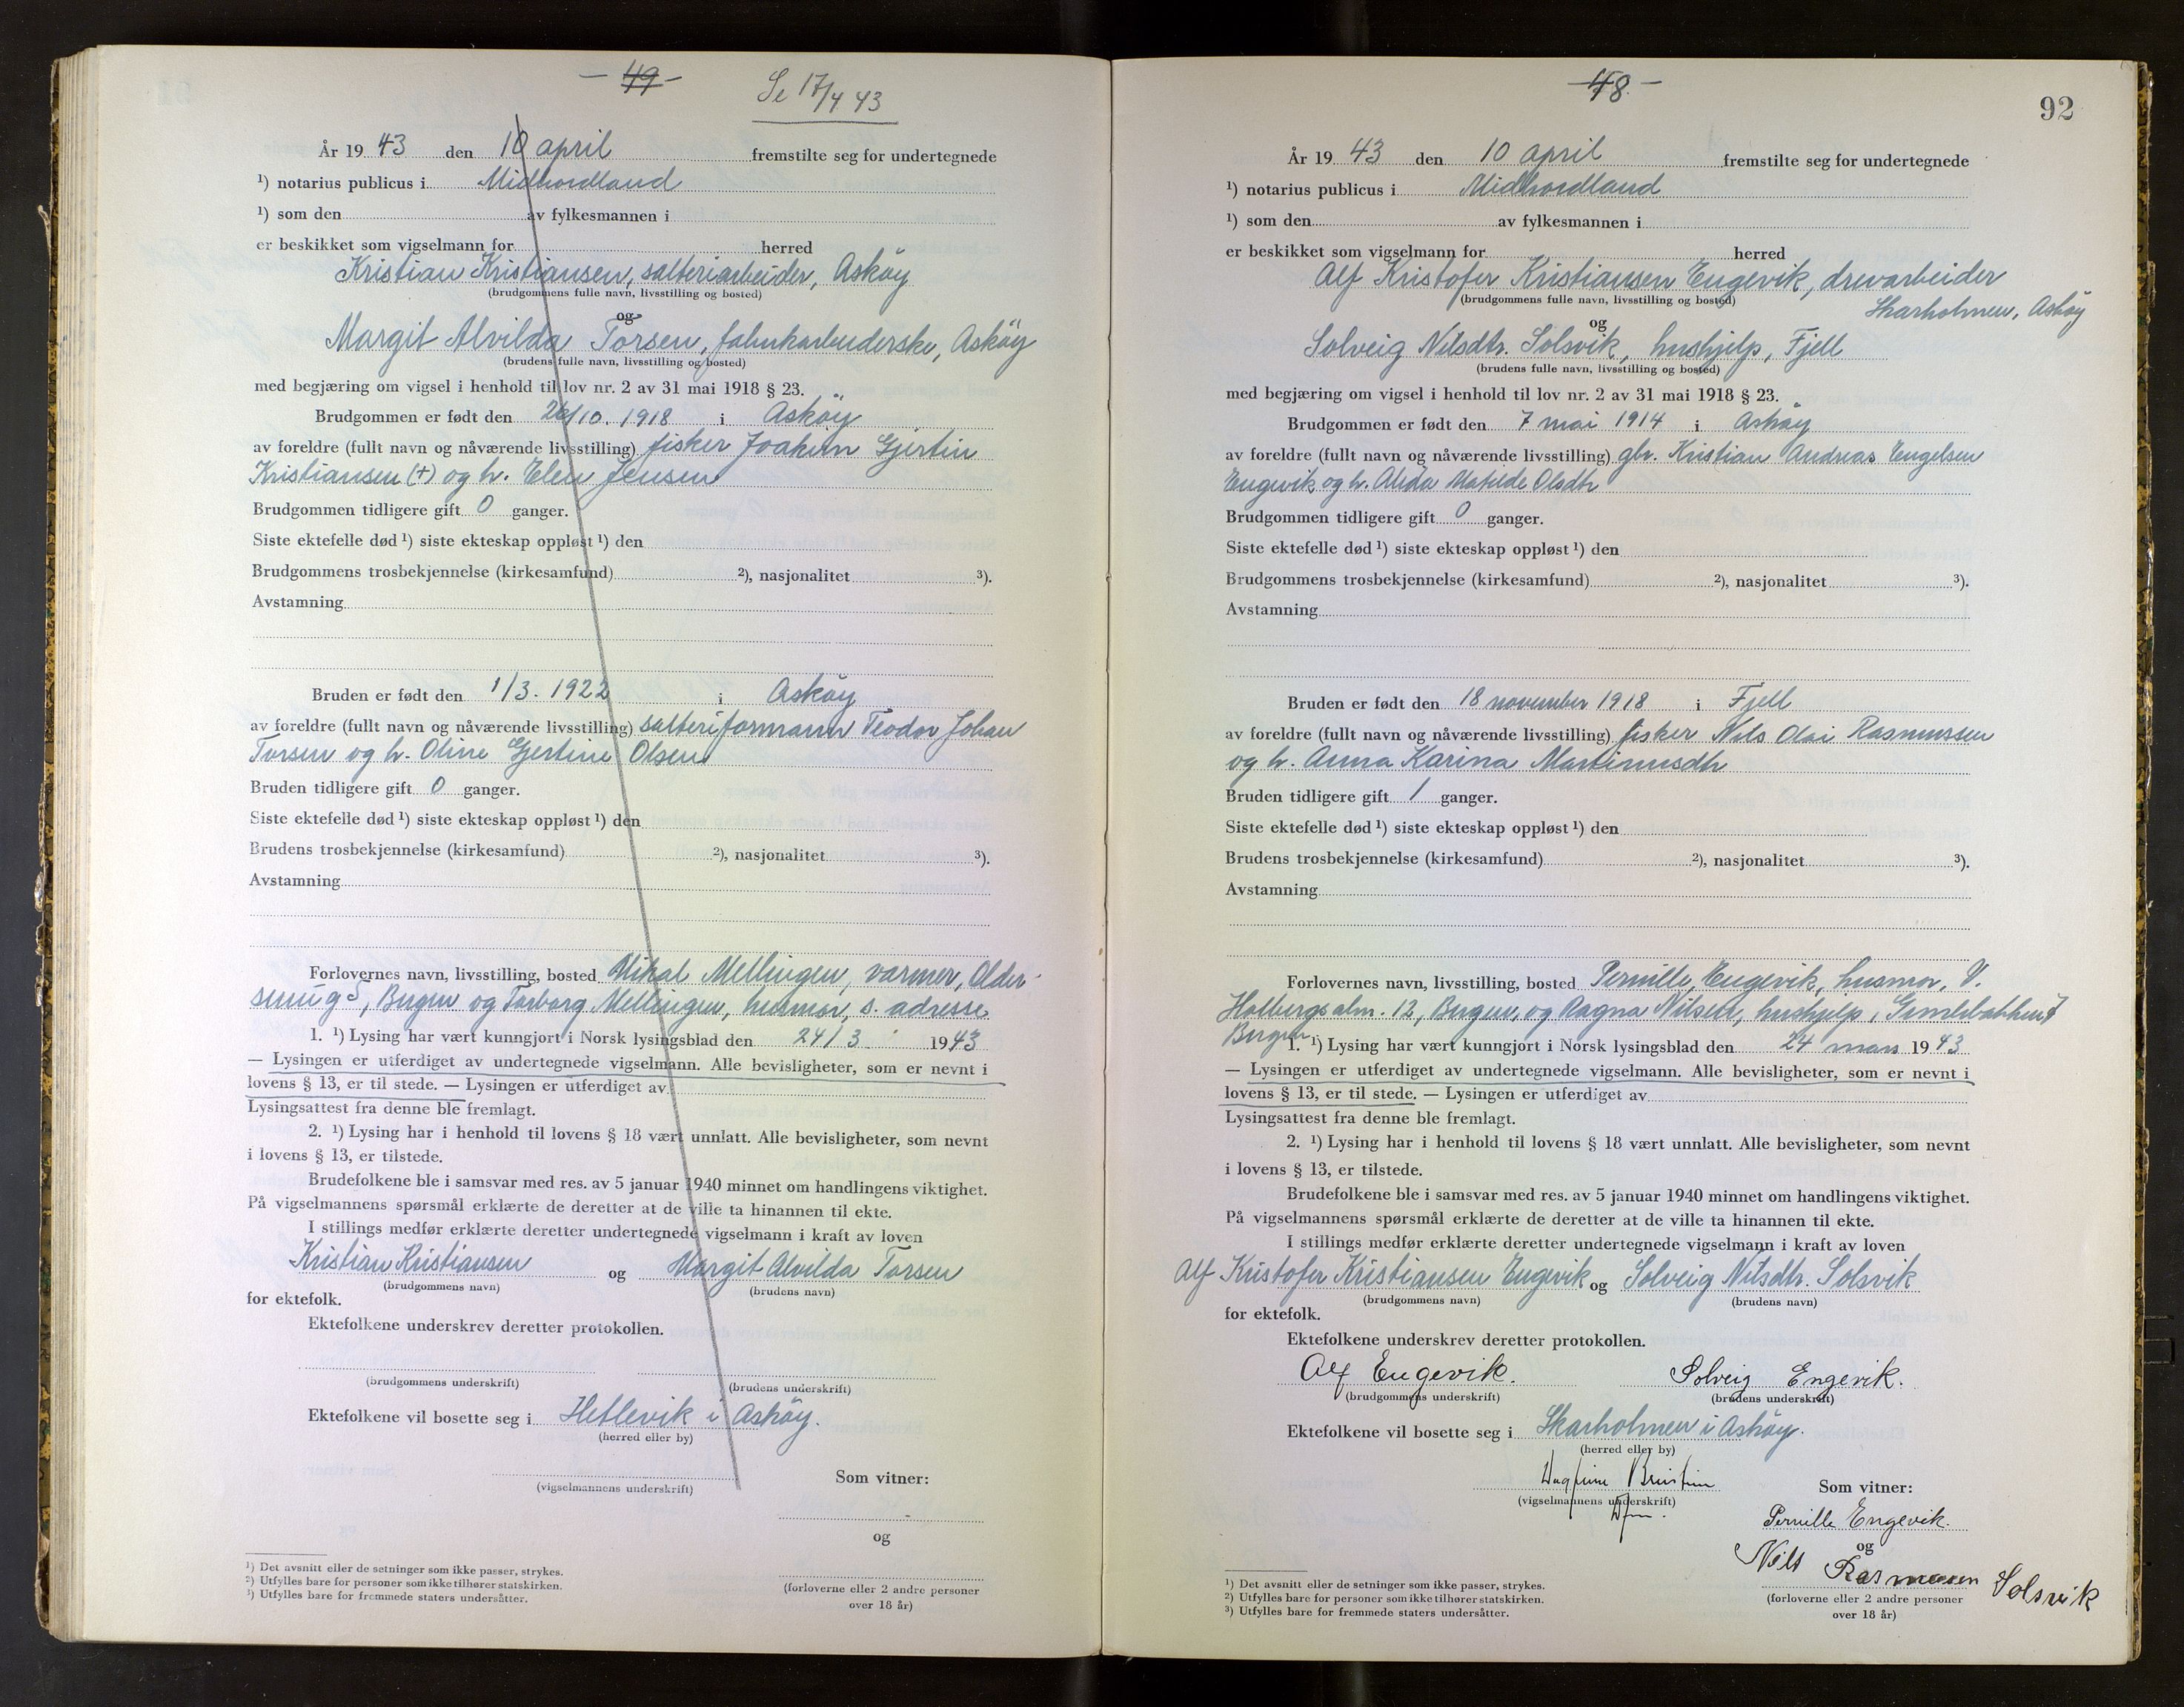 - 49 -
Se 17/4 43
År 19 43 den 10 april fremstilte seg for undertegnede
¹) notarius publicus i Midhordland
¹) som den av fylkesmannen i
er beskikket som vigselmann for herred
Kristian Kristiansen, salteriarbeider, Askøy
(brudgommens fulle navn, livsstilling og bosted)
og
Margit Alvilda Torsen, fabrikarbeiderske, Askøy
(brudens fulle navn, livsstilling og bosted)
med begjæring om vigsel i henhold til lov nr. 2 av 31 mai 1918 § 23.
Brudgommen er født den 26/10. 1918 i Askøy
av foreldre (fullt navn og nåværende livsstilling) fisker Joakim Gjertin
Kristiansen (+) og h. Elen Jensen
Brudgommen tidligere gift 0 ganger.
Siste ektefelle død ¹) siste ekteskap oppløst ¹) den
Brudgommens trosbekjennelse (kirkesamfund) ²), nasjonalitet ³).
Avstamning
Bruden er født den 1/3. 1922 i Askøy
av foreldre (fullt navn og nåværende livsstilling) salteriformann Teodor Johan
Torsen og h. Oline Gjertine Olsen
Bruden tidligere gift 0 ganger.
Siste ektefelle død ¹) siste ekteskap oppløst ¹) den
Brudens trosbekjennelse (kirkesamfund) ²), nasjonalitet ³).
Avstamning
Forlovernes navn, livsstilling, bosted Mikal Mellingen, varmer, Older-
smug 5, Bergen og Torborg Mellingen, husmor, s. adresse
1. ¹) Lysing har vært kunngjort i Norsk lysingsblad den 24/3 1943
— Lysingen er utferdiget av undertegnede vigselmann. Alle bevisligheter, som er nevnt i
lovens § 13, er til stede. — Lysingen er utferdiget av
Lysingsattest fra denne ble fremlagt.
2. ¹) Lysing har i henhold til lovens § 18 vært unnlatt. Alle bevisligheter, som nevnt
i lovens § 13, er tilstede.
Brudefolkene ble i samsvar med res. av 5 januar 1940 minnet om handlingens viktighet.
På vigselmannens spørsmål erklærte de deretter at de ville ta hinannen til ekte.
I stillings medfør erklærte deretter undertegnede vigselmann i kraft av loven
Kristian Kristiansen og Margit Alvilda Torsen
(brudgommens navn) (brudens navn)
for ektefolk.
Ektefolkene underskrev deretter protokollen.
(brudgommens underskrift) (brudens underskrift)
Ektefolkene vil bosette seg i Hetlevik i Askøy.
(herred eller by)
Som vitner:
(vigselmannens underskrift)
og
(forloverne eller 2 andre personer
over 18 år)
¹) Det avsnitt eller de setninger som ikke passer, strykes.
²) Utfylles bare for personer som ikke tilhører statskirken.
³) Utfylles bare for fremmede staters undersåtter.
- 48 -
92
År 19 43 den 10 april fremstilte seg for undertegnede
¹) notarius publicus i Midhordland
¹) som den av fylkesmannen i
er beskikket som vigselmann for herred
Alf Kristofer Kristiansen Engevik, drevarbeider
(brudgommens fulle navn, livsstilling og bosted)
Skarholmen, Askøy
og
Solveig Nilsdtr. Solsvik, hushjelp, Fjell
(brudens fulle navn, livsstilling og bosted)
med begjæring om vigsel i henhold til lov nr. 2 av 31 mai 1918 § 23.
Brudgommen er født den 7 mai 1914 i Askøy
av foreldre (fullt navn og nåværende livsstilling) gbr. Kristian Andreas Engelsen
Engevik og h. Alida Matilde Olsdtr
Brudgommen tidligere gift 0 ganger.
Siste ektefelle død ¹) siste ekteskap oppløst ¹) den
Brudgommens trosbekjennelse (kirkesamfund) ²), nasjonalitet ³).
Avstamning
Bruden er født den 18 november 1918 i Fjell
av foreldre (fullt navn og nåværende livsstilling) fisker Nils Olai Rasmussen
og h. Anna Karina Martinusdtr
Bruden tidligere gift 1 ganger.
Siste ektefelle død ¹) siste ekteskap oppløst ¹) den
Brudens trosbekjennelse (kirkesamfund) ²), nasjonalitet ³).
Avstamning
Forlovernes navn, livsstilling, bosted Pernille Engevik, husmor, V.
Holbergsalm. 12, Bergen, og Ragna Nilsen, hushjelp,
Bergen
1. ¹) Lysing har vært kunngjort i Norsk lysingsblad den 24 mars 19 43
— Lysingen er utferdiget av undertegnede vigselmann. Alle bevisligheter, som er nevnt i
lovens § 13, er til stede. — Lysingen er utferdiget av
Lysingsattest fra denne ble fremlagt.
2. ¹) Lysing har i henhold til lovens § 18 vært unnlatt. Alle bevisligheter, som nevnt
i lovens § 13, er tilstede.
Brudefolkene ble i samsvar med res. av 5 januar 1940 minnet om handlingens viktighet.
På vigselmannens spørsmål erklærte de deretter at de ville ta hinannen til ekte.
I stillings medfør erklærte deretter undertegnede vigselmann i kraft av loven
Alf Kristofer Kristiansen Engevik og Solveig Nilsdtr. Solsvik
(brudgommens navn) (brudens navn)
for ektefolk.
Ektefolkene underskrev deretter protokollen.
Alf Engevik. Solveig Engevik.
(brudgommens underskrift) (brudens underskrift)
Ektefolkene vil bosette seg i Skarholmen i Askøy.
(herred eller by)
(vigselmannens underskrift)
Som vitner:
Pernille Engevik.
og
Nils Rasmussen Solsvik
(forloverne eller 2 andre personer
over 18 år)
¹) Det avsnitt eller de setninger som ikke passer, strykes.
²) Utfylles bare for personer som ikke tilhører statskirken.
³) Utfylles bare for fremmede staters undersåtter.